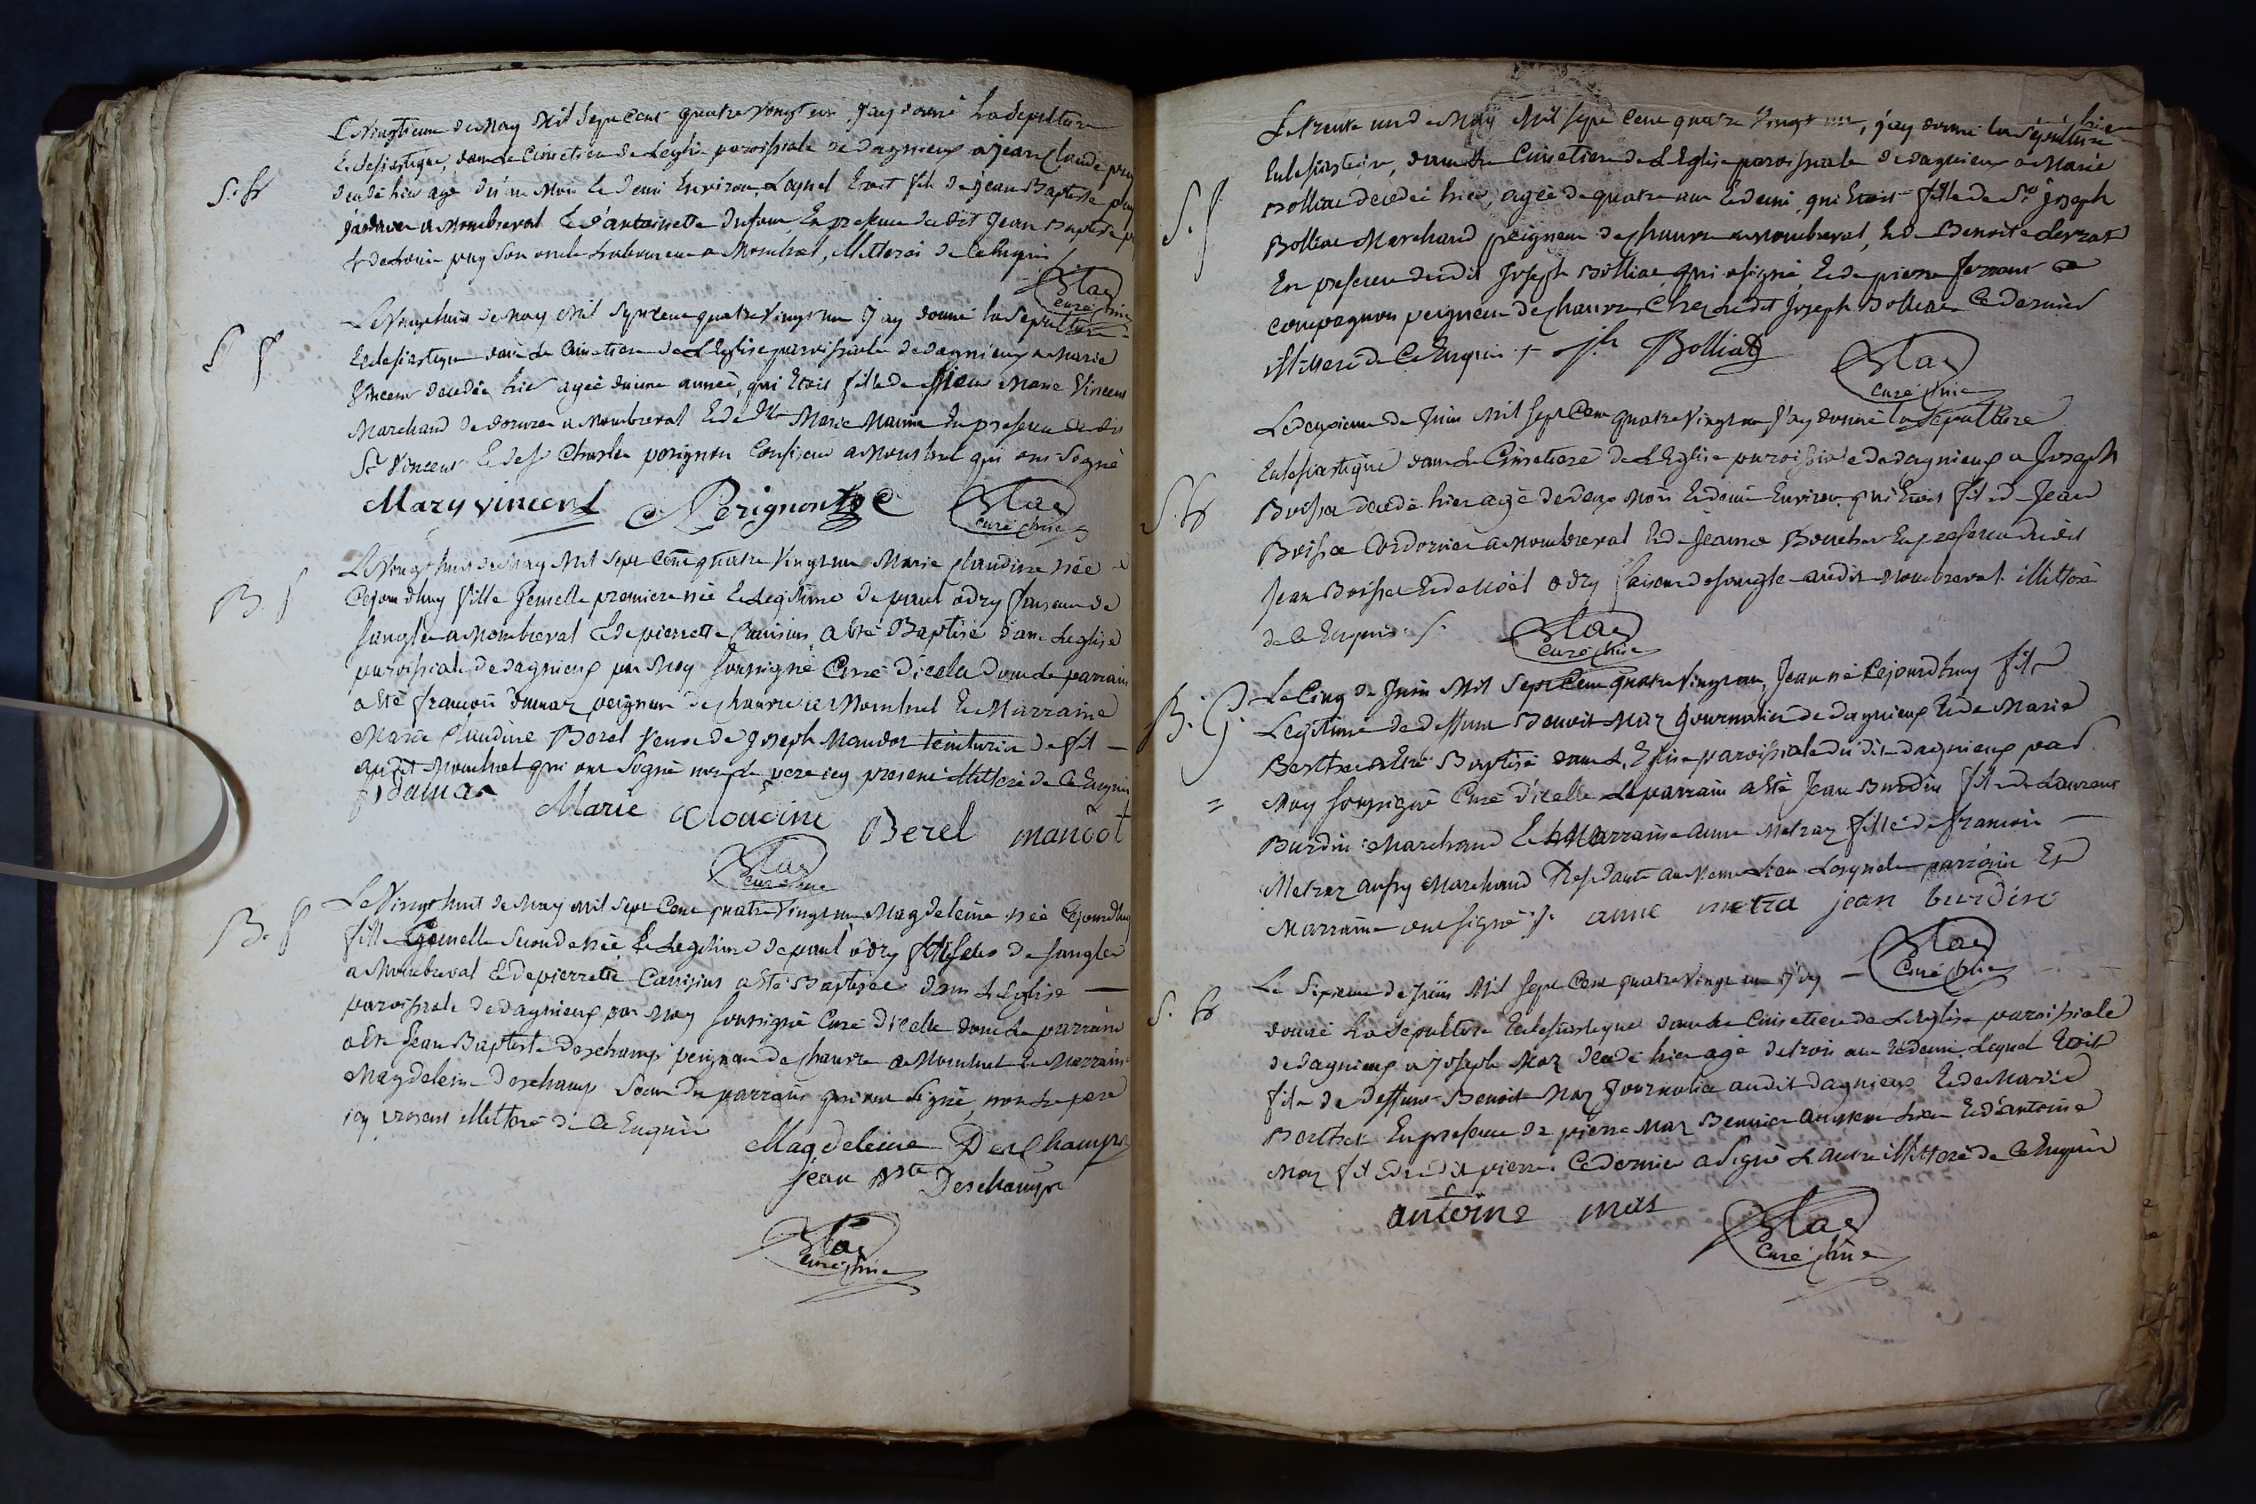 Le Vingtieme de May Mil Sept Cent quatre Vingt un J'ay donné la Sepulture
Ecclesiastique, dans Le Cimetiere de Leglise paroissiale de dagnieux a jean Claude
S. fr
decedé hier agé d'un Mois Et demi Environ Lequel Etoit fils de jean Baptiste
a Montluel Et d'antoinette En presence du dit Jean Baptiste
Et de son oncle Laboureur a Montluel, illitterés de Ce Enquis
Curé
Le Vingt huit de May Mil Sept Cent quatre Vingt un J'ay donné la Sepulture
S f
Ecclesiastique dans Le Cimetiere de L'Eglise paroissiale de dagnieux a Marie
Vincent decedée hier agée d'une année, qui Etoit fille de Sieur Marie Vincent
Marchand a Montluel Et de Dlle Marie En presence du dit
Sr Vincent Et de Sr Charles perignon a Montluel qui ont Signé
Mary vincent Perignon
Curé
Le Vingt huit de May Mil Sept Cent quatre Vingt un Marie Claudine née
B. f
Cejourdhuy fille Gemelle premiere née Et Legitime de paul odry faiseur de
Sangles a Montluel Et de pierrette a Eté Baptisée dans Leglise
paroissiale de dagnieux par Moy Soussigné Curé d'icelle dont Le parrain
a Eté françois peigneur de Chanvre a Montluel Et Marraine
Marie Claudine Borel Veuve de Joseph Mandot teinturier de fil
audit Montluel qui ont Signé non Le pere icy present illitteré de Ce Enquis
Marie Cloudine Berel mandot
Curé
Le Vingt huit de May Mil Sept Cent quatre Vingt un Magdeleine née Cejourdhuy
B. f
fille Gemelle Seconde née Et Legitime de paul odry faiseur de Sangles
a Montluel Et de pierrette a Eté Baptisée dans L'Eglise
paroissiale de dagnieux par Moy Soussigné Curé d'icelle dont Le parrain
a Eté Jean Baptiste Deschamps peigneur de Chanvre a Montluel Et Marraine
Magdeleine Deschamps Soeur du parrain qui ont Signé, non Le pere
icy present illitteré de Ce Enquis
Magdeleine Deschamps
jean Bte Deschamps
Curé
Le trente un de May Mil Sept Cent quatre Vingt un, j'ay donné la Sepulture
Ecclesiastique, dans Le Cimetiere de L'Eglise paroissiale de dagnieux a Marie
S. f
Bolliat decedée hier, agée de quatre ans Et demi, qui Etoit fille de Sr joseph
Bolliat Marchand peigneur de Chanvre a Montluel, Et de Benoite
En presence du dit Joseph Bolliat qui a signé Et de pierre
Compagnon peigneur de Chanvre Chez Le dit Joseph Bolliat Ce dernier
illitteré de Ce Enquis jh Bolliat
Curé
Le deuxieme de Juin Mil Sept Cent quatre Vingt un J'ay donné la Sepulture
Ecclesiastique dans Le Cimetiere de L'Eglise paroissiale de dagnieux a Joseph
S. fr
decedé hier agé de deux Mois Et demi Environ qui Etoit fils de Jean
Cordonnier a Montluel Et de Jeanne En presence du dit
Jean Et de Noël odry faiseur de Sangle audit Montluel illitterés
de Ce Enquis
Curé
Le Cinq de Juin Mil Sept Cent quatre Vingt un, Jean né Cejourdhuy fils
B. G.
Legitime de deffunt Benoit Maz Journalier de dagnieux Et de Marie
Berthet a Eté Baptisé dans L'Eglise paroissiale du dit dagnieux par
Moy Soussigné Curé d'icelle Le parrain a Eté Jean Burdin fils de Laurent
Burdin Marchand Et La Marraine anne Metraz fille de françois
Metraz aussy Marchand Residants au Meme Lieu Lesquels parrain Et
Marraine ont signé anne metra jean burdin
Curé
Le Sixieme de Juin Mil Sept Cent quatre Vingt un J'ay
S. fr
donné La Sepulture Ecclesiastique dans Le Cimetiere de L'Eglise paroissiale
de dagnieux a joseph Maz decedé hier agé de trois ans Et demi Lequel Etoit
fils de Deffunt Benoit Maz Journalier audit dagnieux Et de Marie
Berthet En presence de pierre Maz au Meme Lieu Et d'antoine
Maz fils du dit pierre Ce dernier a Signé L'autre illitteré de Ce Enquis
antoine mas
Curé